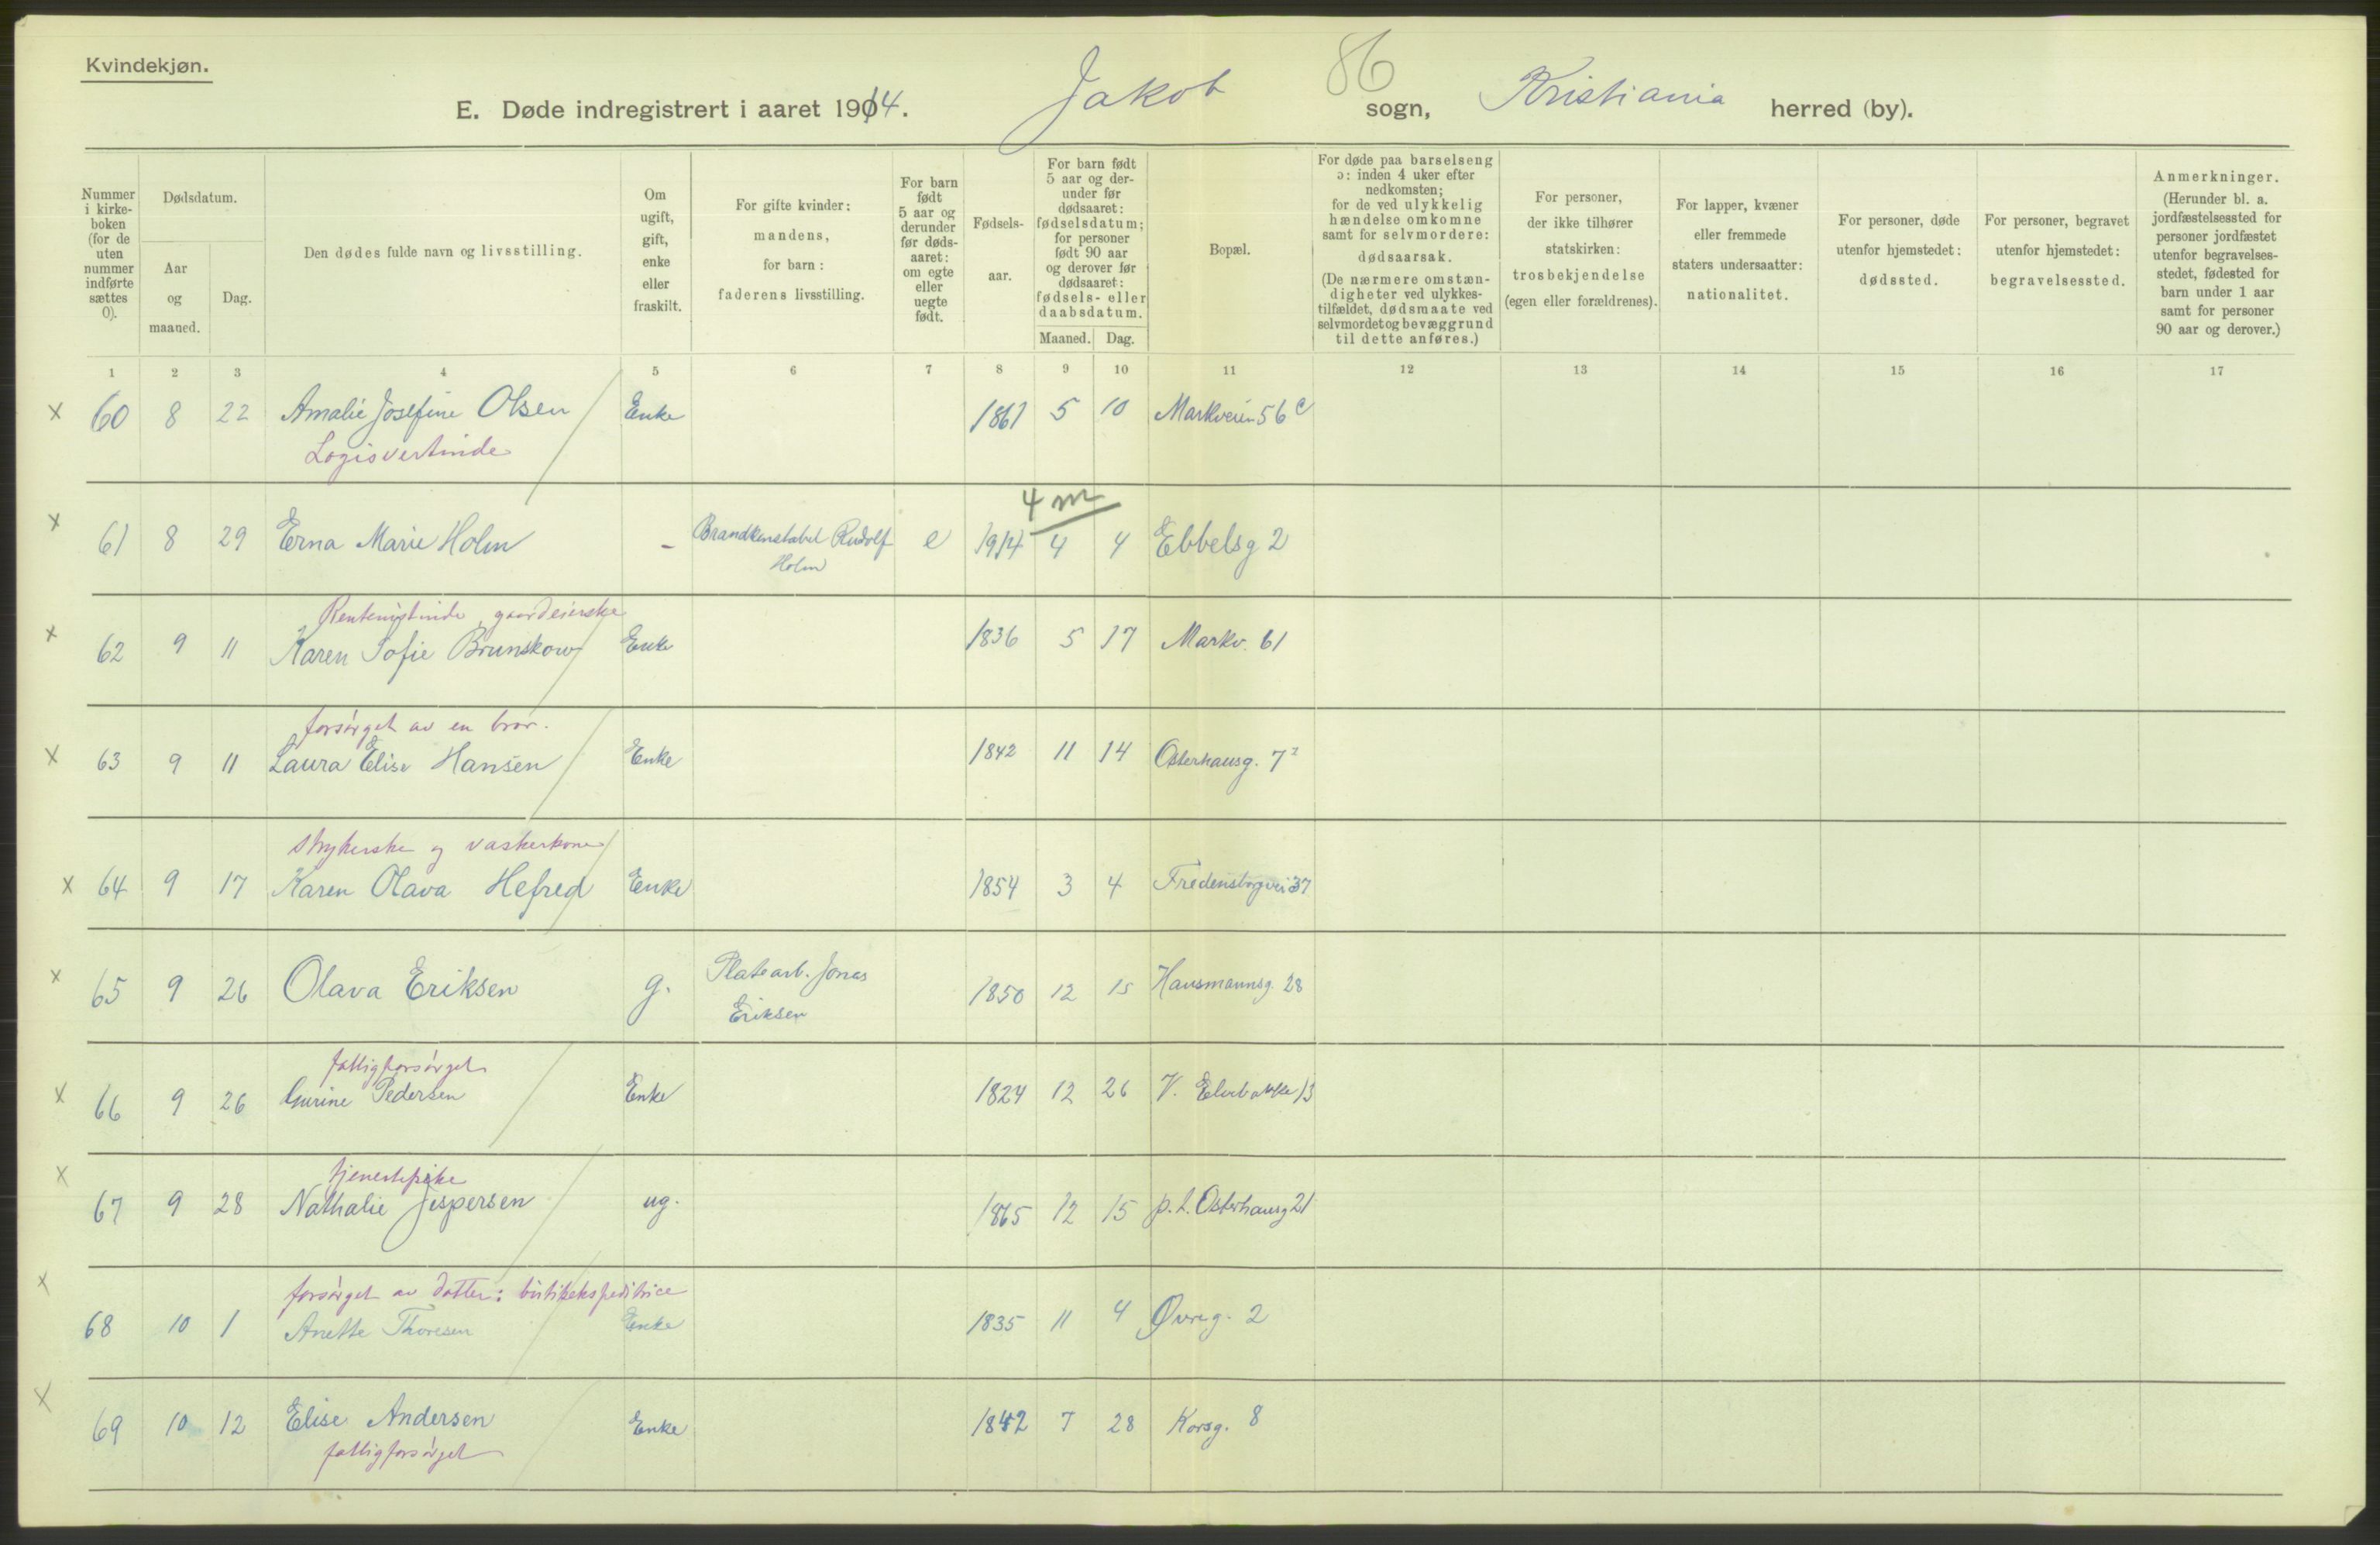 Kvindekjøn.
86
E. Døde indregistrert i aaret 1914. Jakob sogn, Kristiania herred (by).
Nummer i kirke-boken (for de uten nummer indførte sættes 0).
Dødsdatum.
Aar og maaned.
Dag.
Den dødes fulde navn og livsstilling.
Om ugift, gift, enke eller fraskilt.
For gifte kvinder: mandens, for barn: faderens livsstilling.
For barn født 5 aar og derunder før døds-aaret: om egte eller uegte født.
Fødsels-aar.
For barn født 5 aar og der-under før dødsaaret: fødselsdatum; for personer født 90 aar og derover før dødsaaret: fødsels- eller daabsdatum.
Maaned. Dag.
Bopæl.
For døde paa barselseng ɔ: inden 4 uker efter nedkomsten; for de ved ulykkelig hændelse omkomne samt for selvmordere: dødsaarsak. (De nærmere omstæn-digheter ved ulykkes-tilfældet, dødsmaate ved selvmordet og bevæggrund til dette anføres.)
For personer, der ikke tilhører statskirken: trosbekjendelse (egen eller forældrenes).
For lapper, kvæner eller fremmede staters undersaatter: nationalitet.
For personer, døde utenfor hjemstedet: dødssted.
For personer, begravet utenfor hjemstedet: begravelsessted.
Anmerkninger. (Herunder bl. a. jordfæstelsessted for personer jordfæstet utenfor begravelses-stedet, fødested for barn under 1 aar samt for personer 90 aar og derover.)
1 2 3 4 5 6 7 8 9 10 11 12 13 14 15 16 17
x 60 8 22 Amalie Josefine Olsen Enke 1861 5 10 Markveien 56 c
Logisvertinde
4 m
x 61 8 29 Erna Marie Holm - Brandkonstabel Rudolf e 1914 4 4 Ebbelsg 2
Holm
Rentenistinde, gaardeierske
x 62 9 11 Karen Sofie Brunskow Enke 1836 5 17 Markv. 61
forsørget av en bror.
x 63 9 11 Laura Elise Hansen Enke 1842 11 14 Osterhausg. 7²
strykerske og vaskerkone
x 64 9 17 Karen Olava Hefred Enke 1854 3 4 Fredensborgvei 37
x 65 9 26 Olava Eriksen g. Platearb. Jonas 1850 12 15 Hausmannsg. 28
Eriksen
fattigforsørget
x 66 9 26 Gurine Pedersen Enke 1824 12 26 V. Elvebakke 13
tjenestepike
x 67 9 28 Nathalie Jespersen ug. 1865 12 15 p.t. Osterhausg 21
forsørget av datter: butikekspeditrice
x 68 10 1 Anette Thoresen Enke 1835 11 4 Øvreg. 2
x 69 10 12 Elise Andersen Enke 1842 7 28 Korsg. 8
fattigforsørget